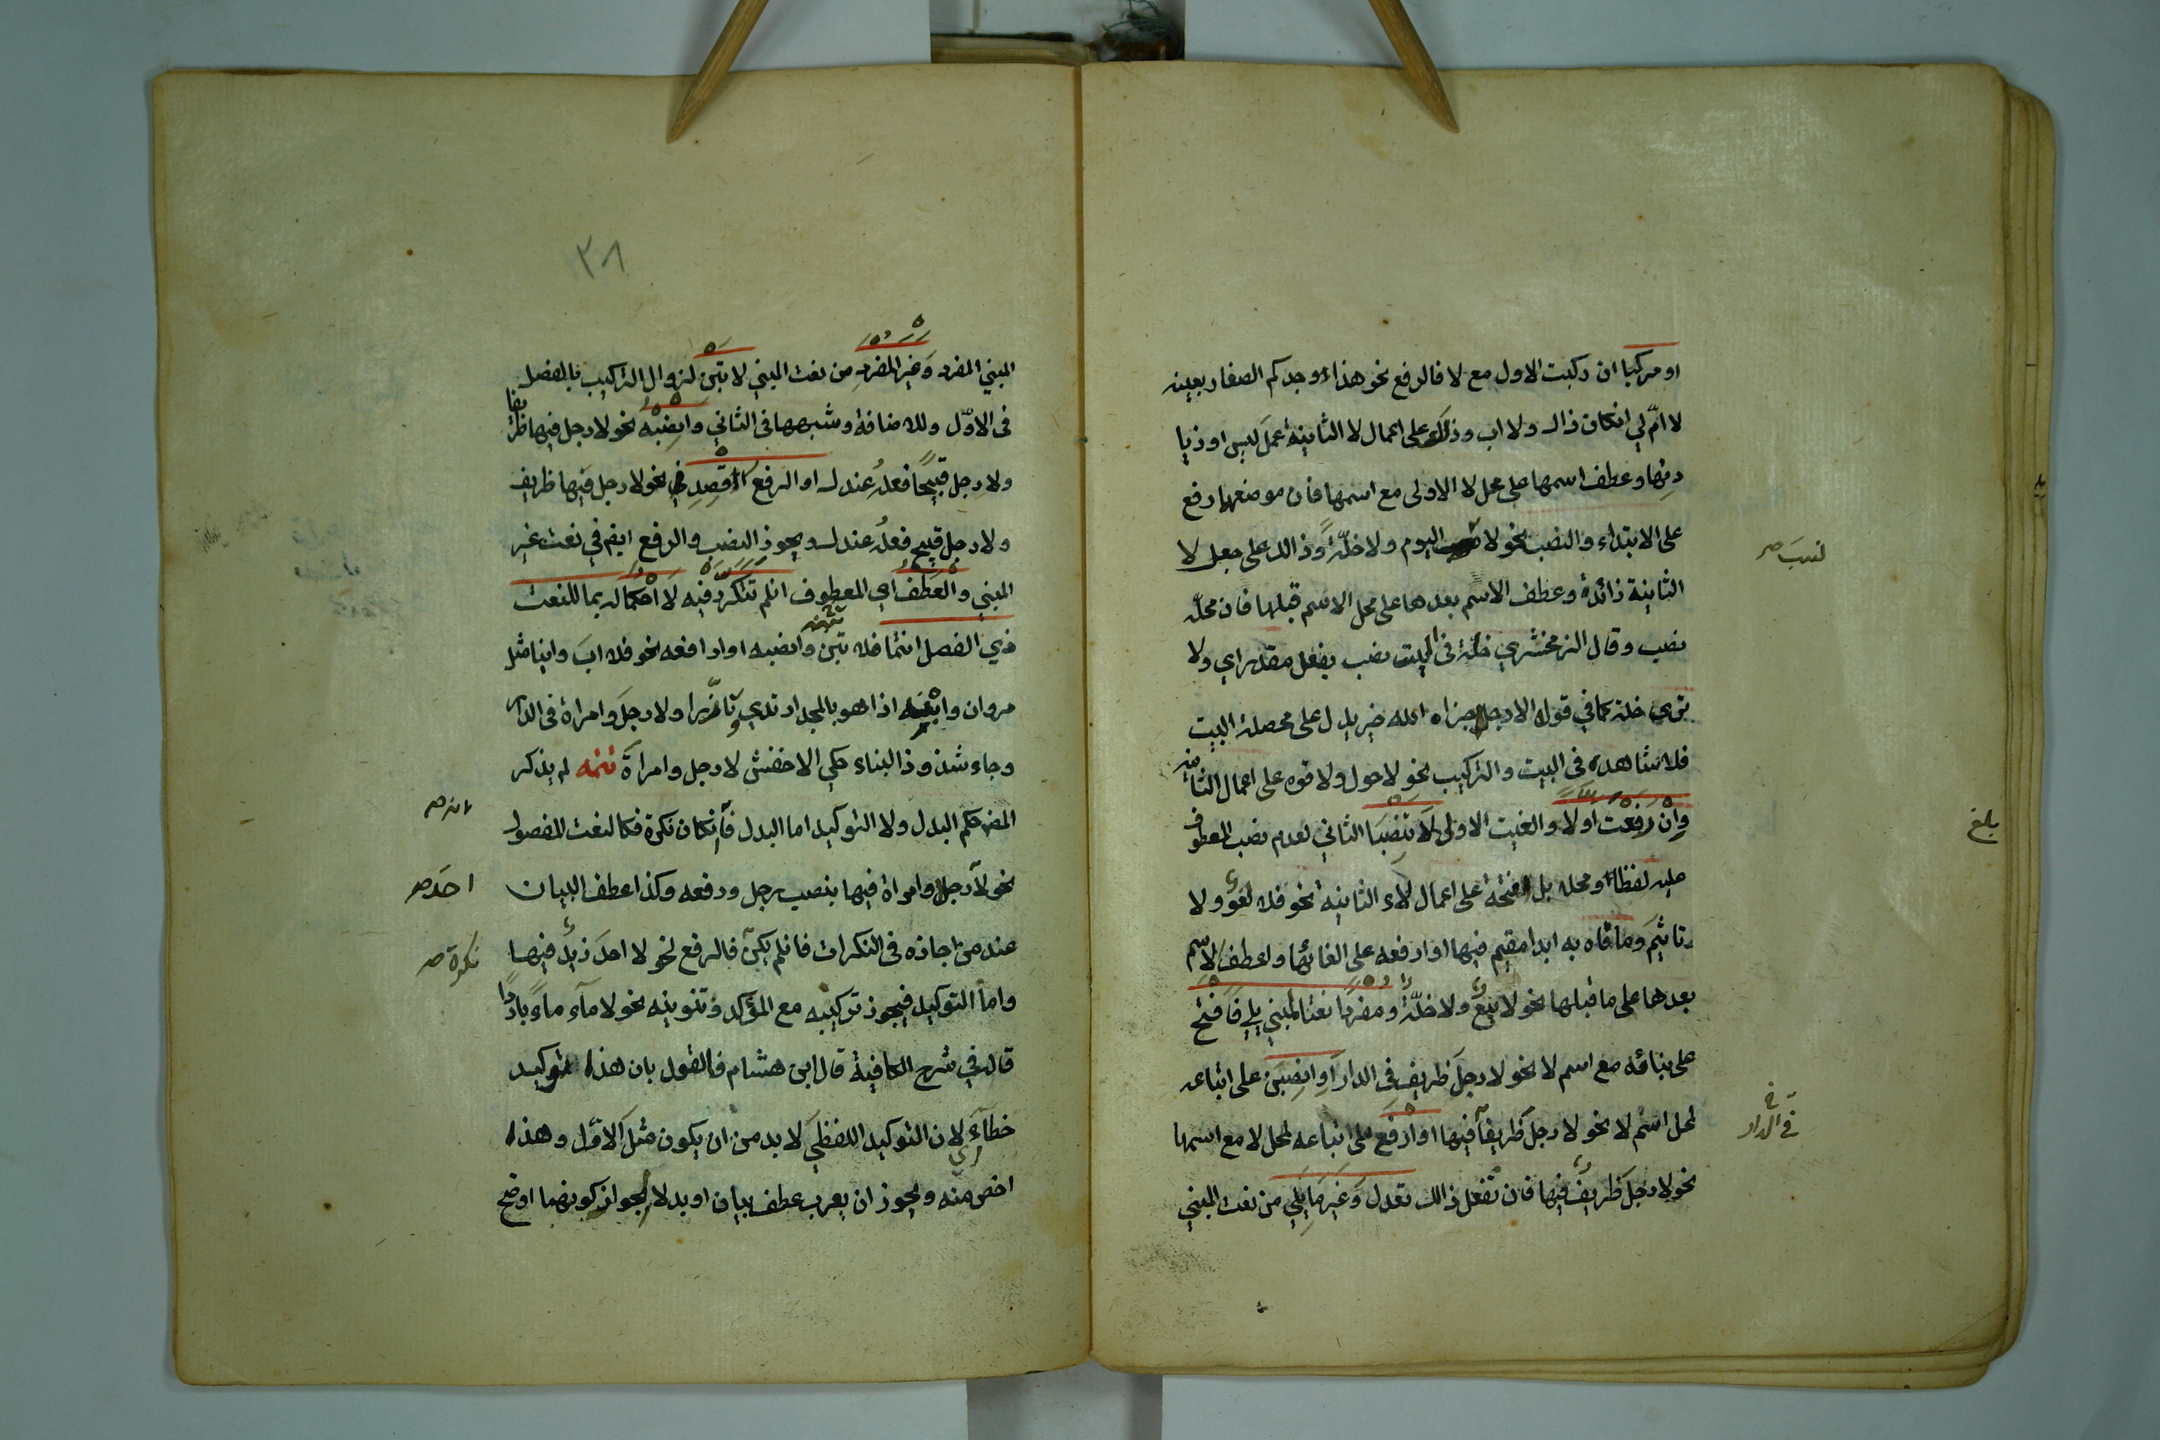 او مركبا ان ركبت الاول مع لا فالرفع نحو هذا وجدكم الصغار بعينه
لا امّ لي ان كان ذاك ولا اب وذلك على اعمال لا الثانية عمل ليس او زيا
دتها وعطف اسمها على محل لا الاولى مع اسمها فان موضعهما رفع
على الابتداء والنصب نحو لا اليوم ولا خلّةً وذالك على جعل لا
نسبَ صح
الثانية زائدة وعطف الاسم بعدها على محل الاسم قبلها فان محلّه
نصب وقال الزمخشري خلّة في البيت نصب بفعل مقدر اي ولا
تري خلة كما في قوله الا رجلا جزاه الله خير يدل على محصلة البيت
فلا شاهد في البيت والتركيب نحو لا حول ولا قوه على اعمال الثانية
وان رفعت اولا والغيت الاولى لا تنصبا الثاني لعدم نصب المعطوف
بلغ
عليه لفظا او محلا بل افتحه على اعمال لاء الثانية نحو فلا لغو ولا
تاثيم وما فاه به ابدا مقيم فيها او ارفعه على الغائها وعطف الاسم
بعدها على ما قبلها نحو لا بيع ولا خلّة ومفردا نعتا لمبني يلي فافتح
على بنائه مع اسم لا نحو لا رجل ظريف في الدار او انصبن على اتباعه
لمحل اسم لا نحو لا رجل ظريفا فيها او ارفع على اتباعه لمحل لا مع اسمها
في الدار
نحو لا رجل ظريف فيها فان تفعل ذالك تعدل وغير ما يلي من نعت المبني
٣٨
المبني المفرد وغير المفرد من نعت المبني لا تبن لزوال التركيب بالفصل
في الاوّل وللاضافة وشبهها في الثاني وانصبه نحو لا رجل فيها ظريفا
ولا رجل قبيحًا فعلُه عندك او الرفع اقصد في نحو لا رجل فيها ظريف
ولا رجل قبيح فعلُه عندك ويجوز النصب والرفع ايضم في نعت غير
المبني والعطف اي المعطوف ان لم تتكرر فيه لا احكم له بما للنعت
ذي الفصل انتما فلا تبن وانصبه او ارفعه نحو فلا اب وابنا مثل
مروان وابنه اذا هو بالمجد ارتدي وتازرا ولا رجل وامراة في الدار
وجاء شذوذ البناء حكي الاخفش لا رجل وامراة تتمه لم يذكر
المص حكم البدل ولا التوكيد اما البدل فان كان نكرة فكالنعت المفصول
نحو لا رجل وامراة فيها بنصب رجل ورفعه وكذا عطف البيان
احدَ صح
عند من اجازه في النكرات فان لم يكن فالرفع نحو لا احد زيد فيها
نكرة صح
واما التوكيد فيجوز تركيبه مع المؤكد وتنوينه نحو لا مآء ماءً باردًا
قاله في شرح الكافية قال ابن هشام فالقول بان هذا توكيد
خطآء لان التوكيد اللفظي لا بد من ان يكون مثل الاوّل وهذا
اخص منه ويجوز ان يعرب عطف بيان او بدلا لجواز كونهما اوضح